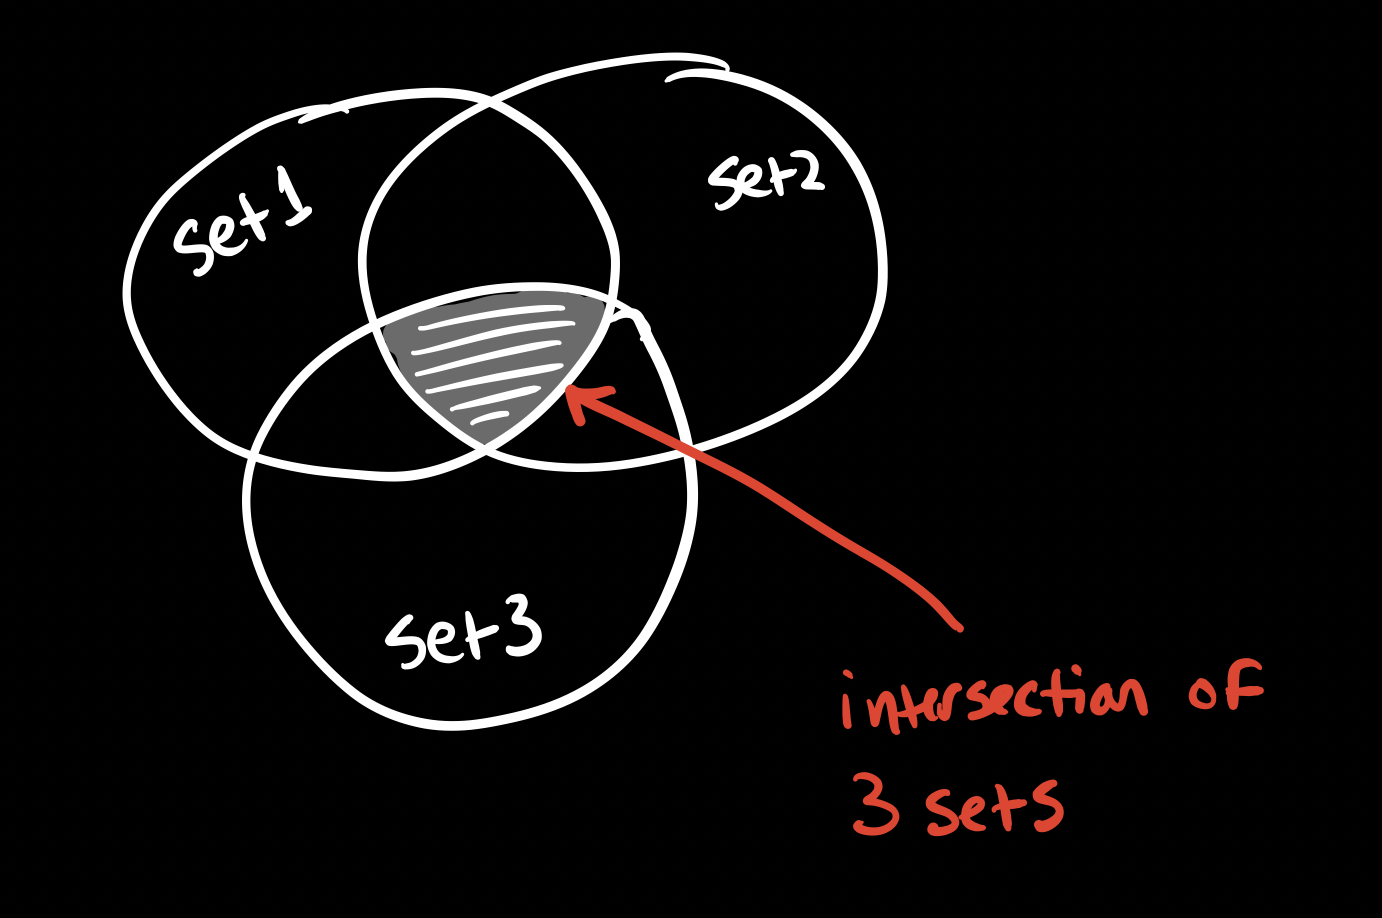 set 1
set2
set3
intersection of
3 sets